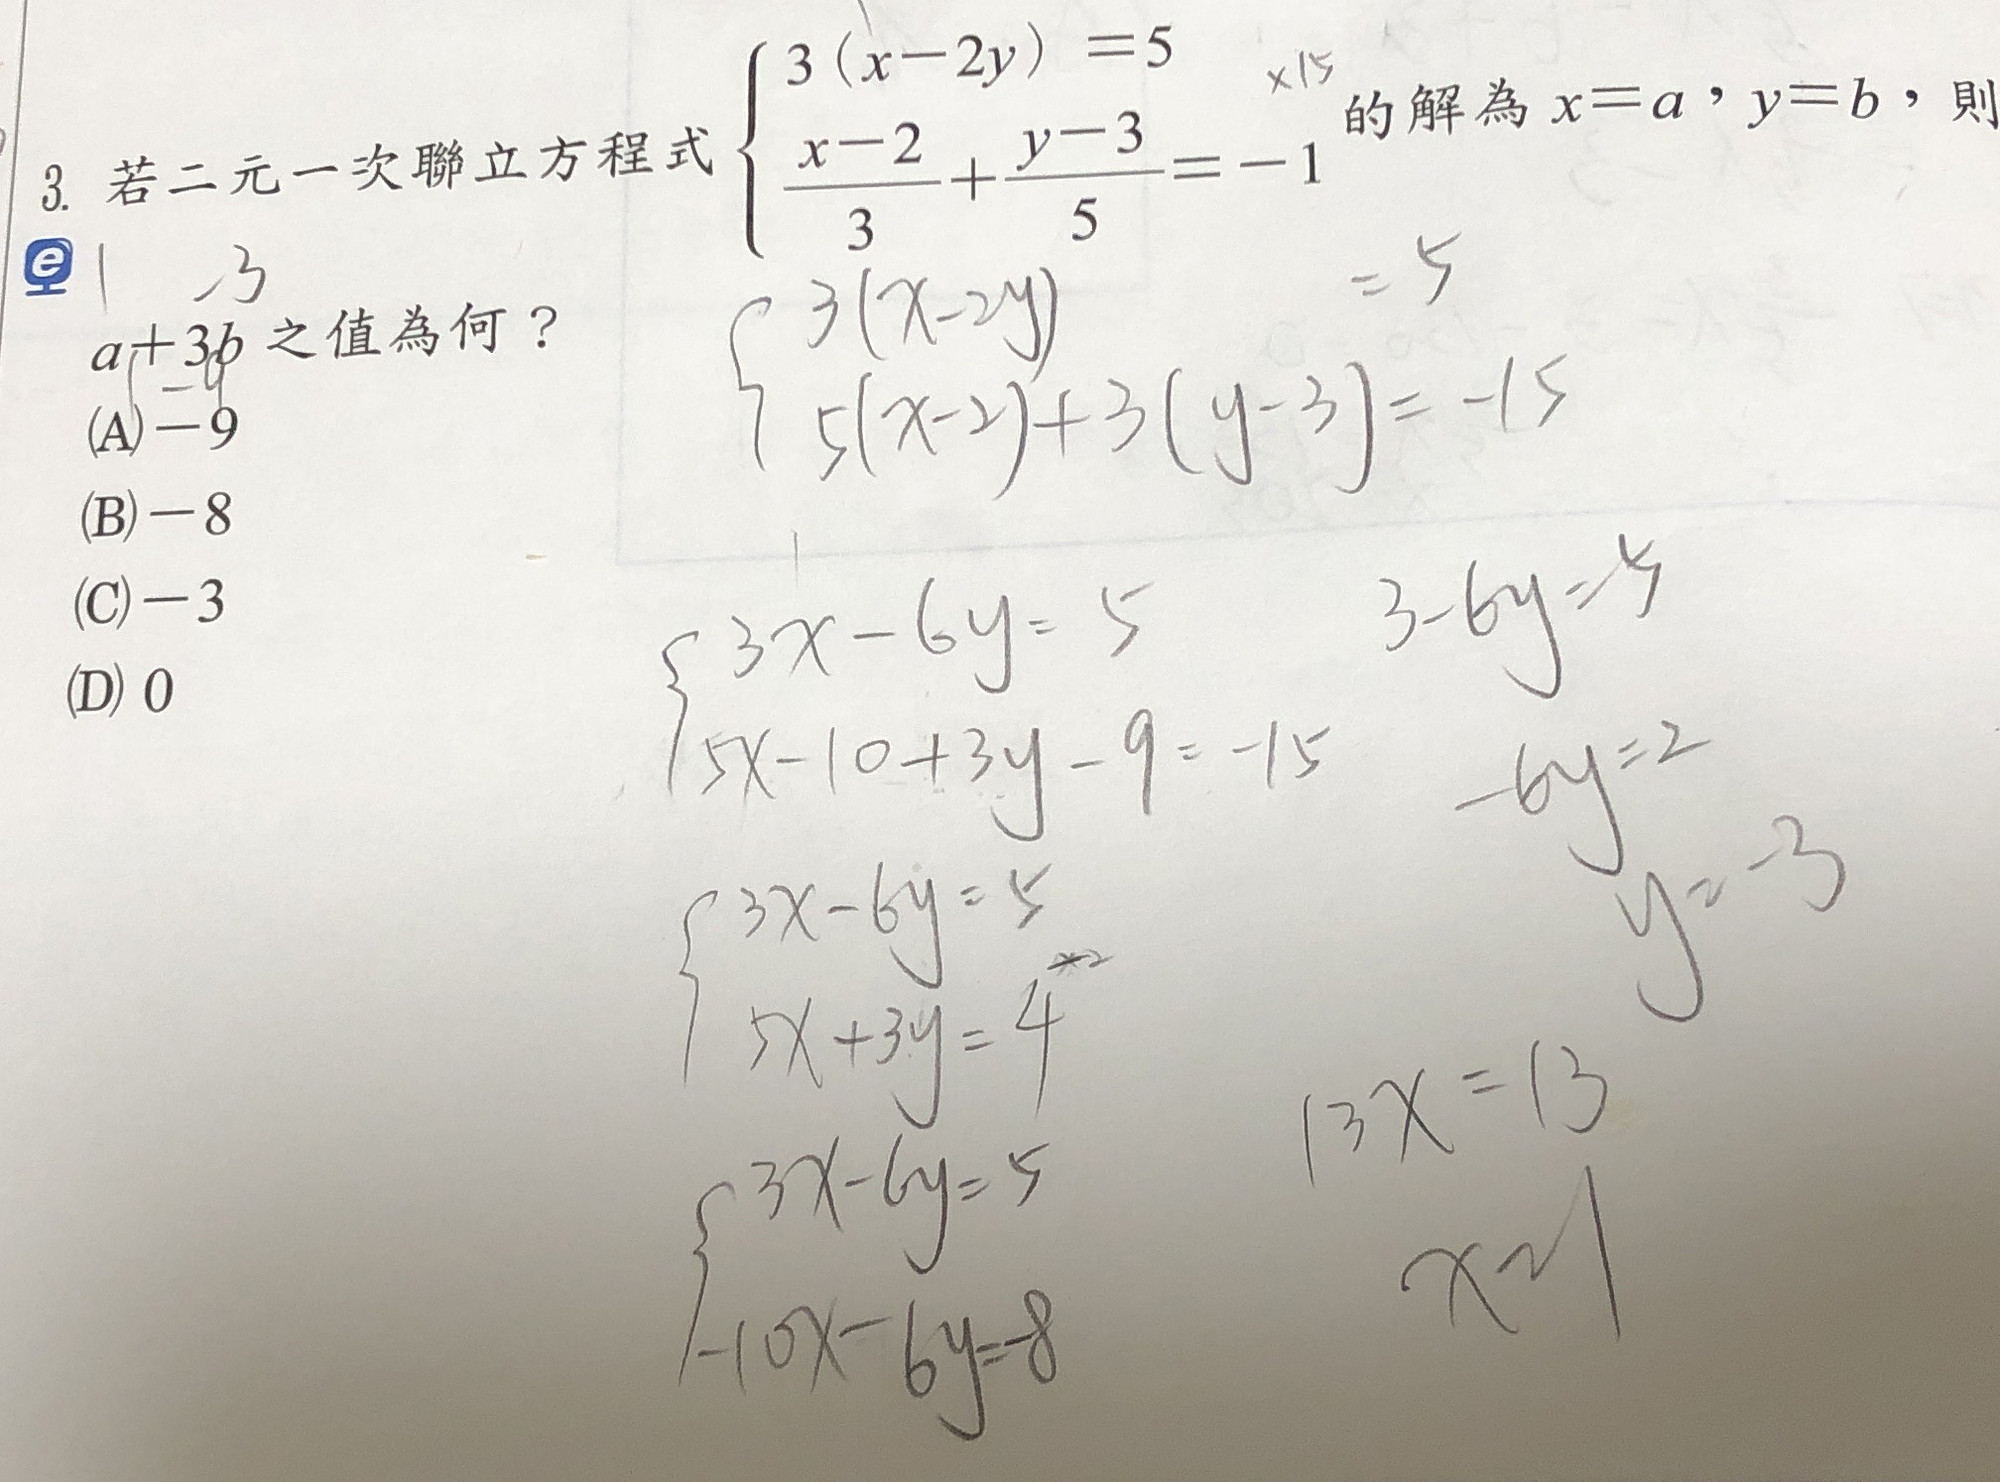 3. 若二元一次聯立方程式 { 3(x－2y)＝5
(x－2)/3＋(y－3)/5＝－1 的解為 x＝a，y＝b，則
×15
1 -3
a＋3b 之值為何？
1 -9
(A)－9
(B)－8
(C)－3
(D) 0
{ 3(x-2y) = 5
5(x-2)+3(y-3)= -15
{ 3x-6y= 5
5x-10+3y-9= -15
{ 3x-6y=5
5x+3y=4
{ 3x-6y=5
-10x-6y=-8
3-6y=5
-6y=2
y=-3
13x=13
x=1